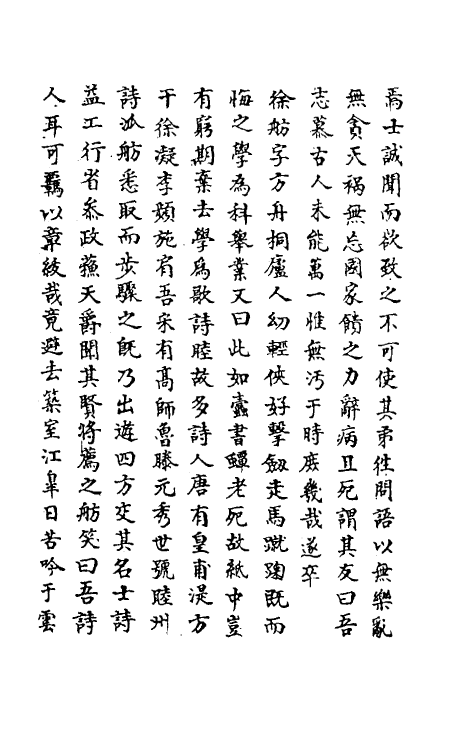 焉士誠聞而欲致之不可使其弟徃問語以無樂亂
無貪天禍無忘國家饋之力辭病且死謂其友曰吾
志慕古人未能萬一惟無汚于時庶幾哉遂卒
徐舫字方舟桐廬人幼輕俠好擊劔走馬蹴踘既而
悔之學為科舉業又曰此如蠹書蟫老死故紙中豈
有窮期棄去學為歌詩睦故多詩人唐有皇甫湜方
干徐凝李頻施肩吾宋有髙師魯滕元秀世號睦州
詩派舫悉取而步驟之既乃出遊四方交其名士詩
益工行省叅政蘓天爵聞其賢将薦之舫笑曰吾詩
人耳可羈以章綬哉竟避去築室江臯日苦吟于雲